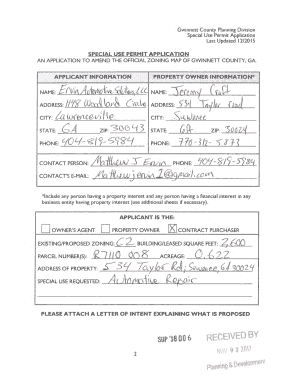 Gwinnett County Planning Division
Special Use Permit Application
Last Updated 12/2015
SPECIAL USE PERMIT APPLICATION
AN APPLICATION TO AMEND THE OFFICIAL ZONING MAP OF GWINNETT COUNTY, GA.
APPLICANT INFORMATION
NAME: Ervin Automotive Solutions, LLC
ADDRESS: 1148 Woodland Circle
CITY: Lawrenceville
STATE: GA ZIP: 30043
PHONE: 404-819-5984
PROPERTY OWNER INFORMATION*
NAME: Jeremy Craft
ADDRESS: 534 Taylor Road
CITY: Suwanee
STATE: GA ZIP: 30024
PHONE: 770-312-5873
CONTACT PERSON: Matthew J Ervin PHONE: 404-819-5984
CONTACT'S E-MAIL: Matthewjervin2@gmail.com
*Include any person having a property interest and any person having a financial interest in any
business entity having property interest (use additional sheets if necessary).
APPLICANT IS THE:
OWNER'S AGENT PROPERTY OWNER X CONTRACT PURCHASER
EXISTING/PROPOSED ZONING: C2 BUILDING/LEASED SQUARE FEET: 2,600
PARCEL NUMBER(S): R7110 008 ACREAGE: 0.622
ADDRESS OF PROPERTY: 534 Taylor Rd, Suwanee, GA 30024
SPECIAL USE REQUESTED: Automotive Repair
PLEASE ATTACH A LETTER OF INTENT EXPLAINING WHAT IS PROPOSED
SUP '18 00 6
RECEIVED BY
2017
2
Planning & Development